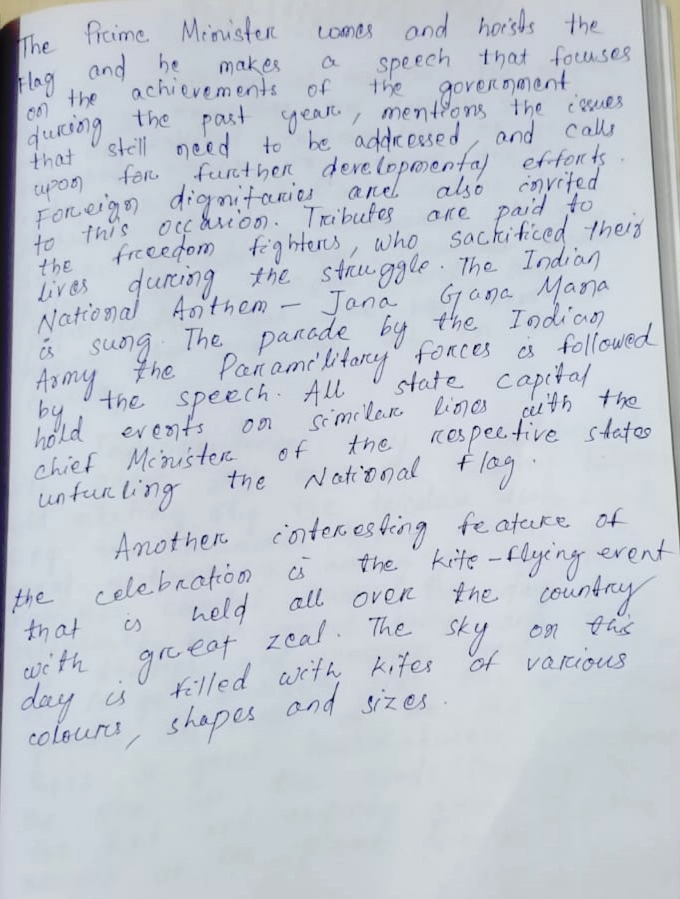 The Prime Minister comes and hoists the
Flag and he makes a speech that focuses
on the achievements of the government
during the past year, mentions the issues
that still need to be addressed, and calls
upon for further developmental efforts.
Foreign dignitaries are also invited
to this occasion. Tributes are paid to
the freedom fighters, who sacrificed their
lives during the struggle. The Indian
National Anthem - Jana Gana Mana
is sung. The parade by the Indian
Army the Paramilitary forces is followed
by the speech. All state capital
hold events on similar lines with the
chief Minister of the respective states
unfurling the National Flag.
Another interesting feature of
the celebration is the kite-flying event
that is held all over the country
with great zeal. The sky on this
day is filled with kites of various
colours, shapes and sizes.